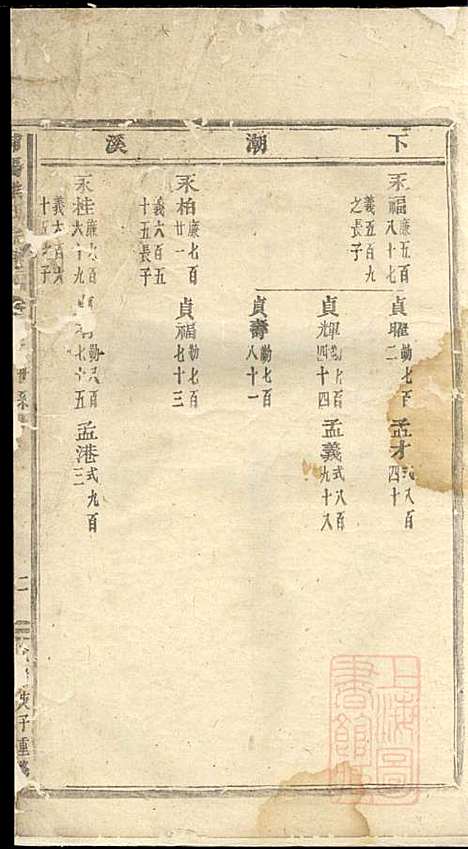 下潮溪
永福廉五百八十七
義五百九之長子
貞曜勒七百二
孟才式八百四十
貞輝勒七百四十四
孟義式八百九十八
貞壽勒七百八十一
永柏廉七百廿一
義六百五十五長子
貞福勒七百七十三
永桂廉九百六十九
義六百六十五子
勒八百七十五
孟港式九百三
二
上海圖書館藏